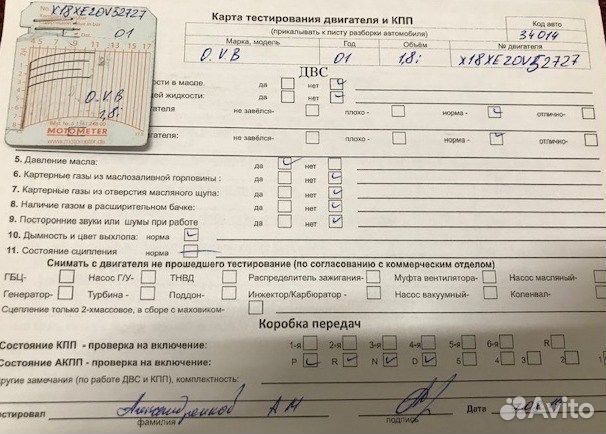 No. X18XE20V52727
01
3 5 7 9 11 13 15 17
O.V.B
1,8i
MOTOMETER
www.motometer.de
Карта тестирования двигателя и КПП
(прикалывать к листу разборки автомобиля)
Код авто
34014
Марка, модель Год Объём № двигателя
O.V.B 01 1,8i X18XE20V52727
ДВС
ости в масле. да нет
щей жидкости: да нет
гателя не завёлся- плохо - норма - отлично-
гателя: не завёлся- плохо - норма - отлично-
5. Давление масла: да нет
6. Картерные газы из маслозаливной горловины : да нет
7. Картерные газы из отверстия масляного щупа: да нет
8. Наличие газом в расширительном бачке: да нет
9. Посторонние звуки или шумы при работе да нет
10. Дымность и цвет выхлопа: норма
11. Состояние сцепления норма
Снимать с двигателя не прошедшего тестирование (по согласованию с коммерческим отделом)
ГБЦ- Насос Г/У- ТНВД Распределитель зажигания- Муфта вентилятора- Насос масляный-
Генератор- Турбина - Поддон- Инжектор/Карбюратор - Насос вакуумный- Коленвал-
Сцепление только 2-хмассовое, а сборе с маховиком-
Коробка передач
Состояние КПП - проверка на включение: 1-я 2-я 3-я 4-я 5-я 6-я R
Состояние АКПП - проверка на включение: P R N D 5 4 3 2 1
Другие замечания (по работе ДВС и КПП), комплектность:
естировал А М Дата
фамилия подпись
Avito